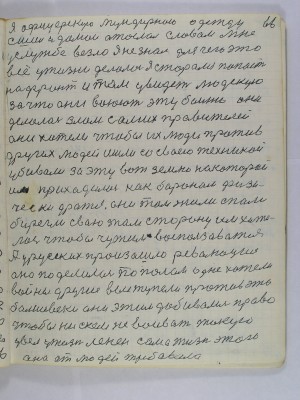 Я офицерскую мундирную одежду 66
снял и домой отослал словом мне
служба везло я не знал для чего это
всё у жизни делали я старался попасть
на фронт и там увидет людскую
за что они воюют эту войну они
делали сами правителей
они хотели чтобы их люди против
других людей ишли со своею техникой
убивали за эту вот землю на которой
им приходилися как баронам физи-
чески драться, они там жили спали
берегли свою сторону им хоте-
лось чтобы чужим воспользоваться
А у русских произошло революция
она поделила пополам одне хотели
войны другие выступали против это
большевики они этим добивали право
чтобы ни с кем не воевать такую
цель у жизни ленин сама жизнь этого
она от людей требовала